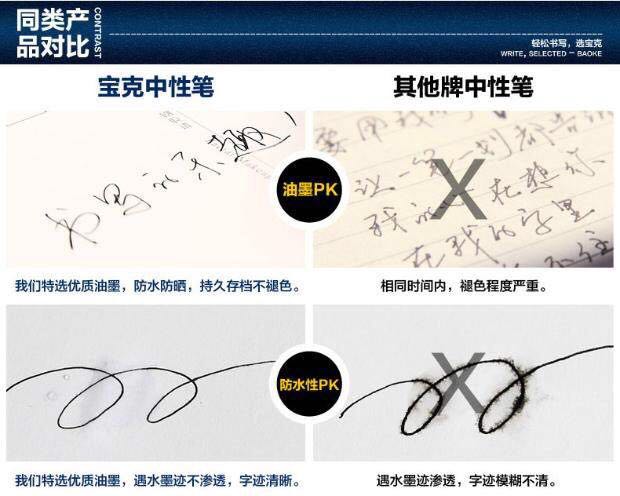 同类产
品对比
CONTRAST
轻松书写，选宝克
WRITE, SELECTED - BAOKE
宝克中性笔
其他牌中性笔
书写的乐趣
油墨PK
要用我的
让一笔一划都告诉
我的 在想你
在我的字里
X
我们特选优质油墨，防水防晒，持久存档不褪色。
相同时间内，褪色程度严重。
防水性PK
X
我们特选优质油墨，遇水墨迹不渗透，字迹清晰。
遇水墨迹渗透，字迹模糊不清。